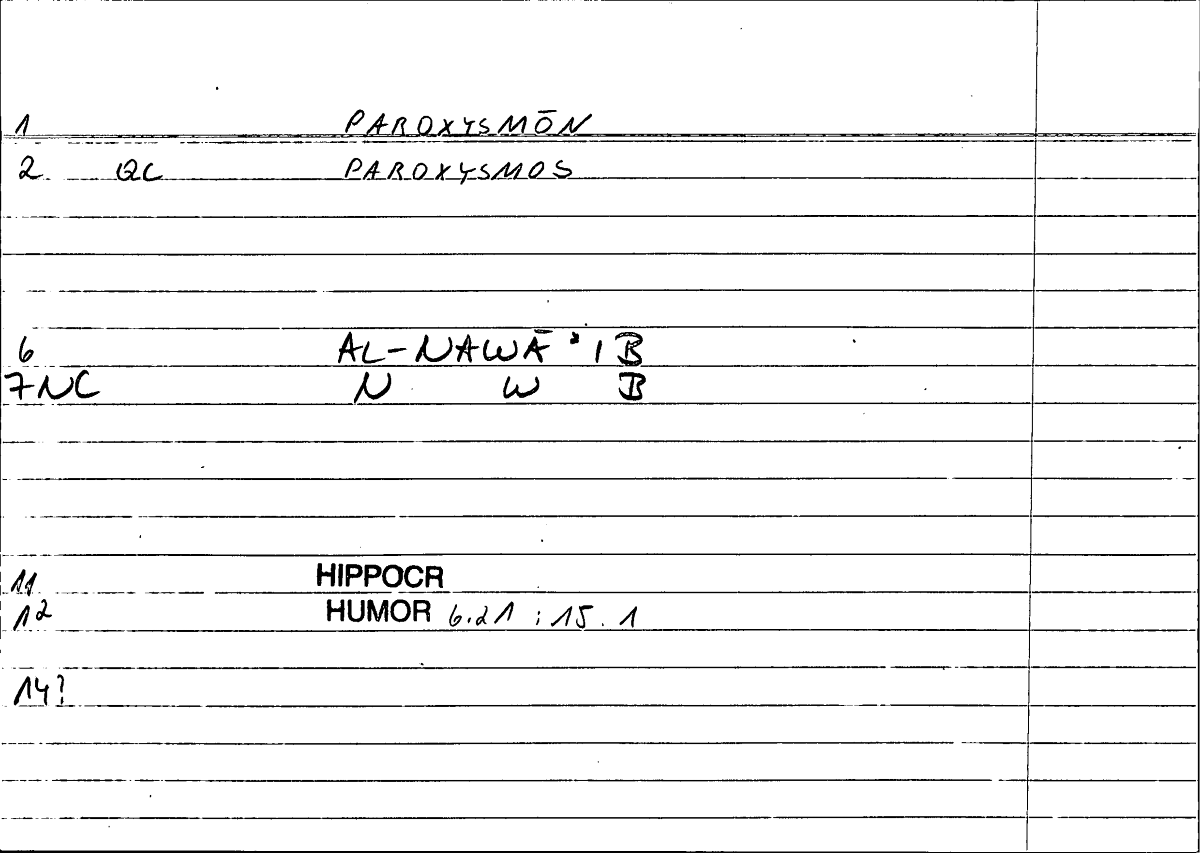 1 PAROXYSMŌN
2 QC PAROXYSMOS
6 AL-NAWĀʾIB
7NC N W B
11 HIPPOCR
12 HUMOR 6.21 ; 15.1
14?